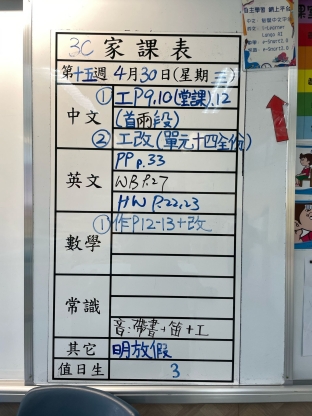 3C 家課表
第十五週 4月30日(星期三)
中文
① 工P9,10(堂課),12
(首兩段)
② 工改(單元十四全份)
英文
PP p.33
WB P.27
HW P.22,23
數學
① 作P12-13+改
常識
音:帶書+笛+工
其它 明放假
值日生 3
自主學習 網上平台